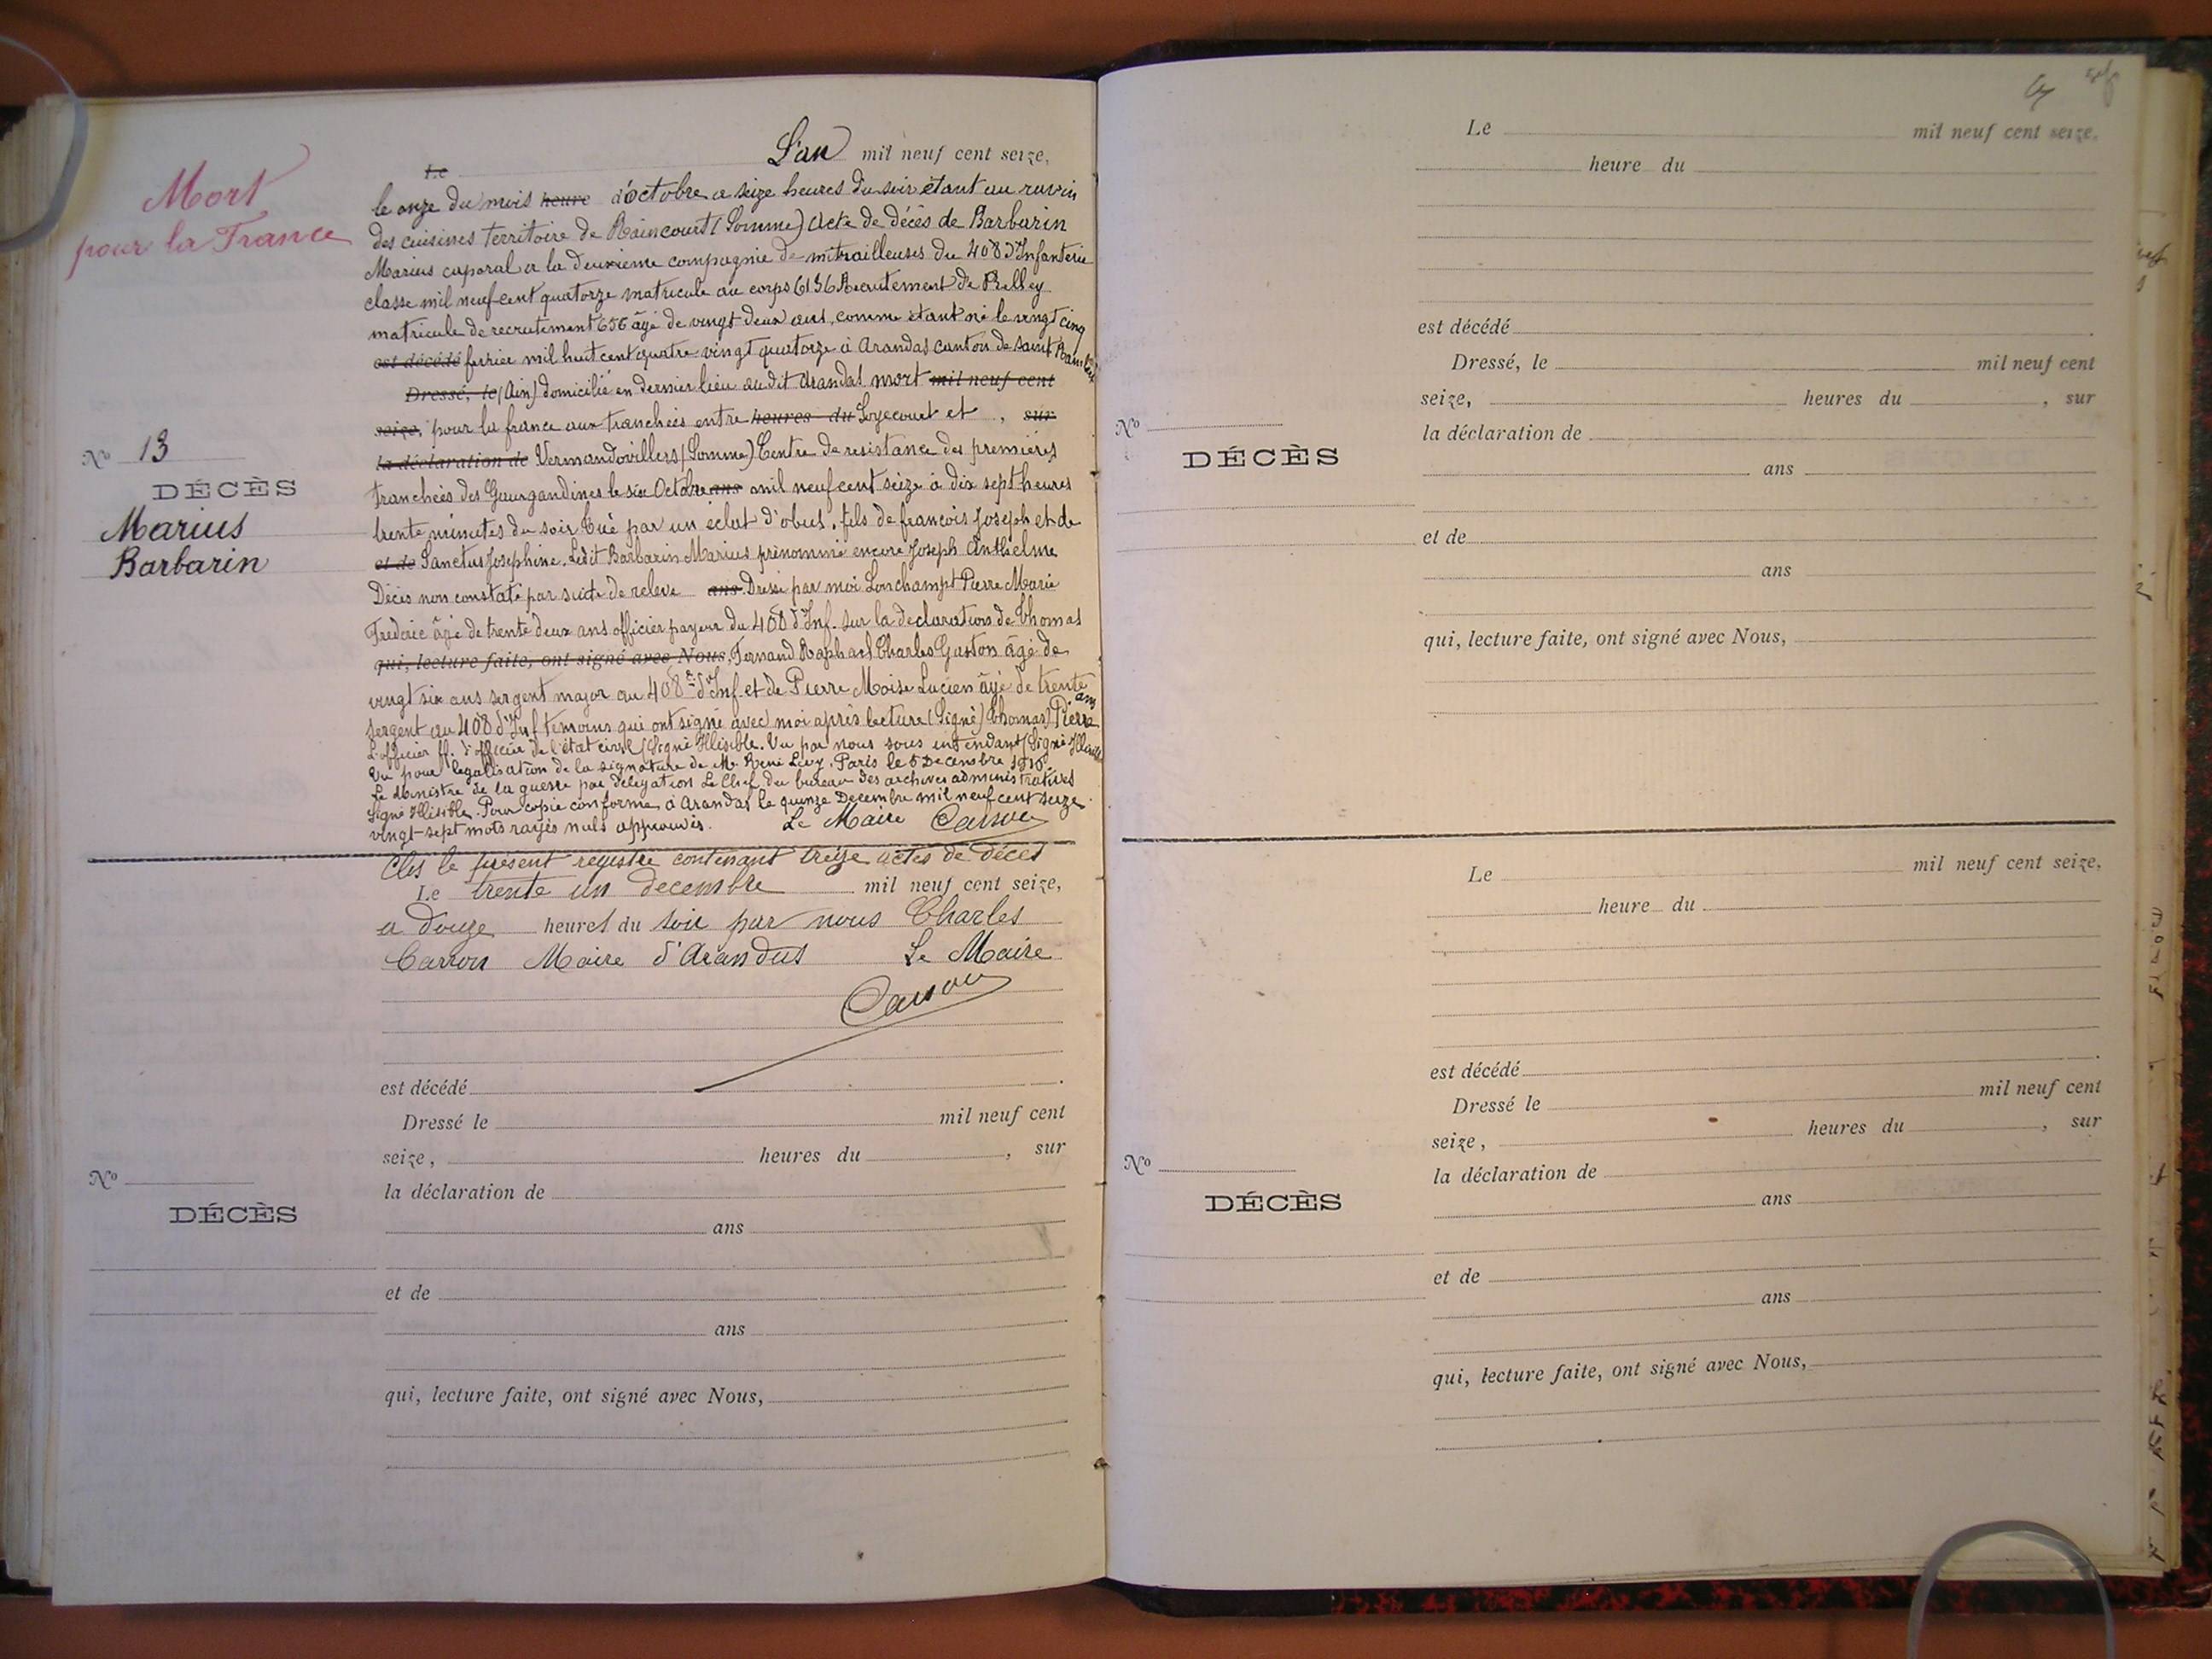 Mort
pour la France
Nº 13
DÉCÈS
Marius
Barbarin
Le L'an mil neuf cent seize,
le onze du mois heure d'octobre a seize heures du soir étant au ravin
des cuisines territoire de Raincourt (Somme) Acte de décès de Barbarin
Marius caporal a la deuxieme compagnie de mitrailleuses du 408 d'Infanterie
classe mil neuf cent quatorze matricule au corps 6136 Recrutement de Belley
matricule de recrutement 656 âgé de vingt deux ans, comme étant né le vingt cinq
est décédé fevrier mil huit cent quatre vingt quatorze à Arandas canton de Saint Rambert
Dressé, le (Ain) domicilié en dernier lieu audit Arandas mort mil neuf cent
seize, pour la france aux tranchées entre heures du Soyecourt et , sur
la déclaration de Vermandovillers (Somme) Centre de resistance des premières
tranchées des Gourgandines le six Octobre ans mil neuf cent seize à dix sept heures
trente minutes du soir Tué par un éclat d'obus, fils de francois Joseph et de
et de Sanctus Josephine. Ledit Barbarin Marius prénommé encore Joseph Anthelme
Décès non constaté par suite de releve ans Dressé par moi Lonchampt Pierre Marie
Frederic âgé de trente deux ans officier payeur du 408 d'Inf. sur la declaration de Thomas
qui, lecture faite, ont signé avec Nous, Fernand Raphael Charles Gaston âgé de
vingt six ans sergent major au 408e d'Inf et de Pierre Moise Lucien âgé de trente ans
sergent au 408 d'Inf temoins qui ont signé avec moi après lecture (Signé) Thomas) Pierre
L'officier ff. d'officier de l'état civil (Signé Illisible. Vu par nous sous intendant (Signé Illisible
Vu pour legalisation de la signature de Mr René Levy. Paris le 5 Decembre 1916
Le Ministre de la guerre par délégation Le Chef du bureau des archives administratives
Signé Illisible. Pour copie conforme à Arandas le quinze Decembre mil neuf cent seize
vingt-sept mots rayés nuls approuvés. Le Maire Carron
Clos le présent registre contenant treize actes de décès
Le trente un decembre mil neuf cent seize,
a douze heures du soir par nous Charles
Carron Maire d'Arandas Le Maire
Carron
est décédé .
Dressé le mil neuf cent
seize, heures du , sur
la déclaration de
Nº
DÉCÈS
ans
et de
ans
qui, lecture faite, ont signé avec Nous,
Le mil neuf cent seize.
heure du
est décédé .
Dressé, le mil neuf cent
seize, heures du , sur
Nº
DÉCÈS
la déclaration de
ans
et de
ans
qui, lecture faite, ont signé avec Nous,
Le mil neuf cent seize.
heure du
est décédé .
Dressé le mil neuf cent
seize, heures du , sur
Nº
DÉCÈS
la déclaration de
ans
et de
ans
qui, lecture faite, ont signé avec Nous,